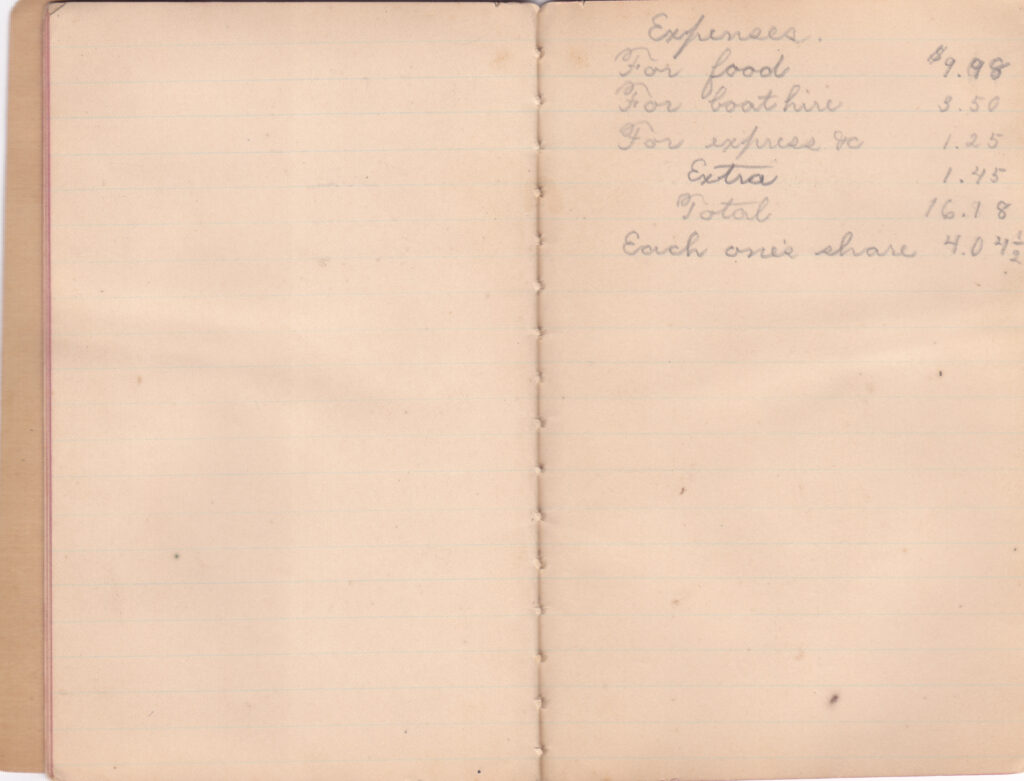 Expenses.
For food $9.98
For boat hire 3.50
For express &c 1.25
Extra 1.45
Total 16.18
Each one's share 4.04½